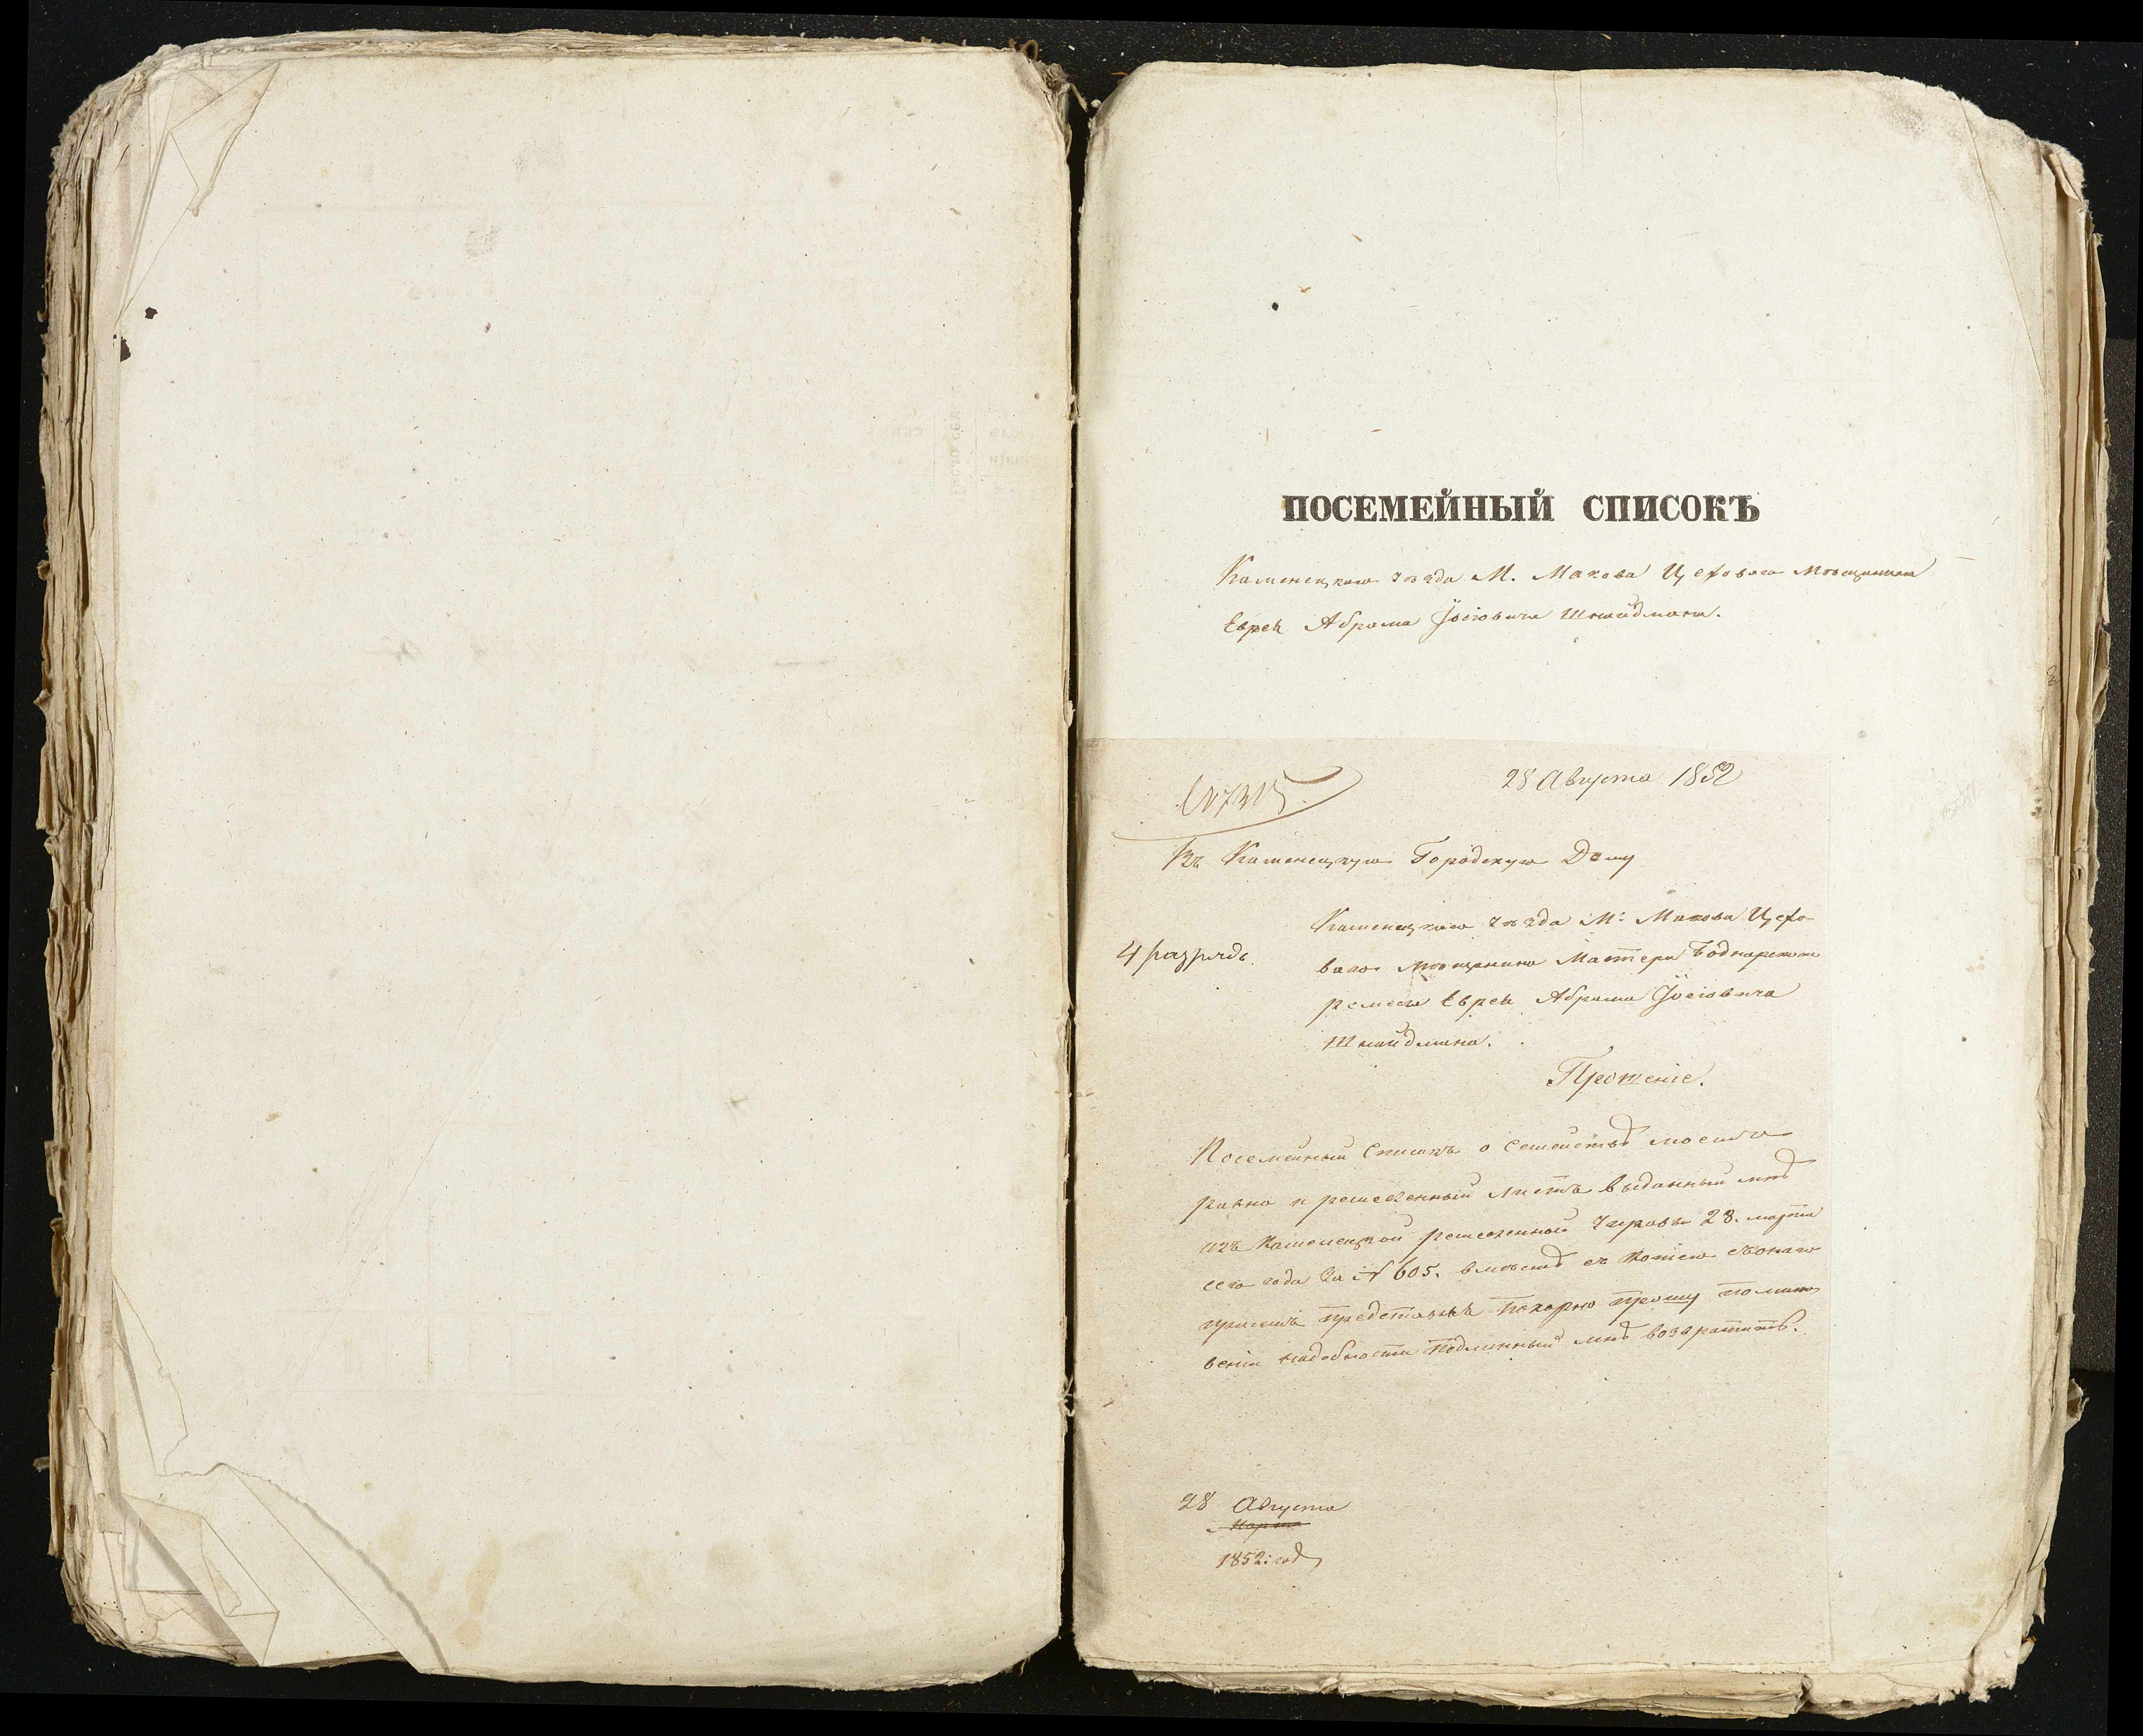 ПОСЕМЕЙНЫЙ СПИСОКЪ
Каменецкаго уѣзда М. Макова Цеховаго Мѣщанина
Еврея Абрама Іосіовича Шнайдмана.
28 Августа 1852
№7315
Въ Каменецкую Городскую Думу
Каменецкаго уѣзда М: Макова Цехо-
4 разрядъ.
ваго мѣщанина Мастера Боднарскаго
ремесла Еврея Абрама Іосіовича
Шнайдмана.
Прошеніе.
Посемейный Списокъ о семействѣ моемъ
равно и ремесленный листъ выданный мнѣ
изъ Каменецкой ремесленной Управы 28. марта
сего года за № 605. вмѣстѣ съ копіею
представляя покорно прошу по мино-
веніи надобности подлинный мнѣ возвратить.
28 Августа
Марта
1852: год